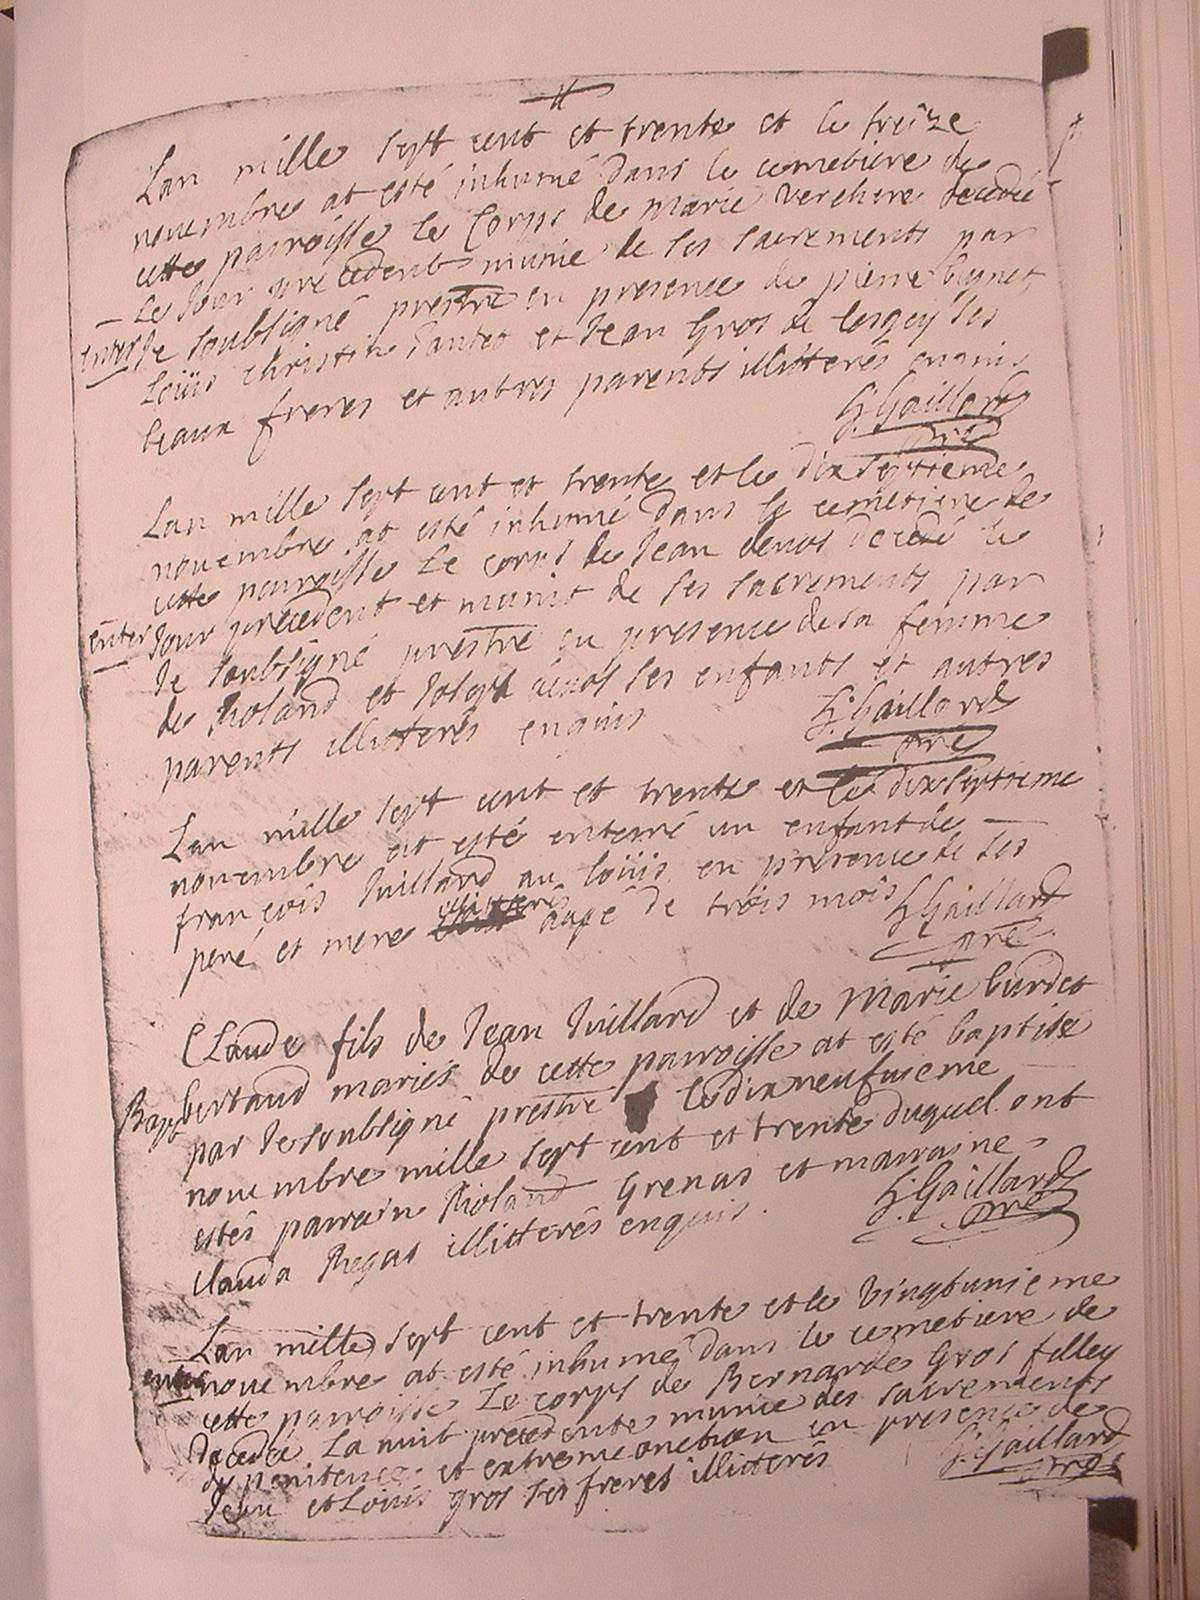 Lan mille sept cent et trente et le treize
novembre at esté inhumé dans le cemetiere de
cette parroisse le Corps de Marie Verchere decedée
le Jour precedent munie de ses sacrements par
enter Je soubsigné prestre en presence de pierre
Loüis Christin et Jean Gros de ses
beaux freres et autres parents illitterés enquis
G. Gaillard
pre
Lan mille sept cent et trente et le dix septieme
novembre at esté inhumé dans le cemetiere de
cette parroisse le corps de Jean denos decedé le
enter Jour precedent et munit de ses sacrements par
Je soubsigné prestre en presence de sa femme
de Roland et Joseph denos ses enfants et autres
parents illitterés enquis
G. Gaillard
pre
Lan mille sept cent et trente et le dix septieme
novembre at esté enterré un enfant de
françois Juillard au loüis en presence de ses
peré et mere illitterés aagé de trois mois
G Gaillard
pre
Claude fils de Jean Juillard et de Marie burdet
Bapt bertaud mariés de cette parroisse at esté baptisé
par Je soubsigné prestre le dixneufvieme
novembre mille sept cent et trente duquel ont
estés parrain Roland Grenas et marraine
Clauda Regat illitterés enquis.
G. Gaillard
pre
Lan mille sept cent et trente et le vingtunieme
enter novembre at esté inhumé dans le cemetiere de
cette parroisse Le corps de Bernarde Gros filley
decedée La nuit precedente munie des sacrements
de penitence et extreme onction en presence de
Jean et Loüis gros ses freres illitterés
G. Gaillard
pre